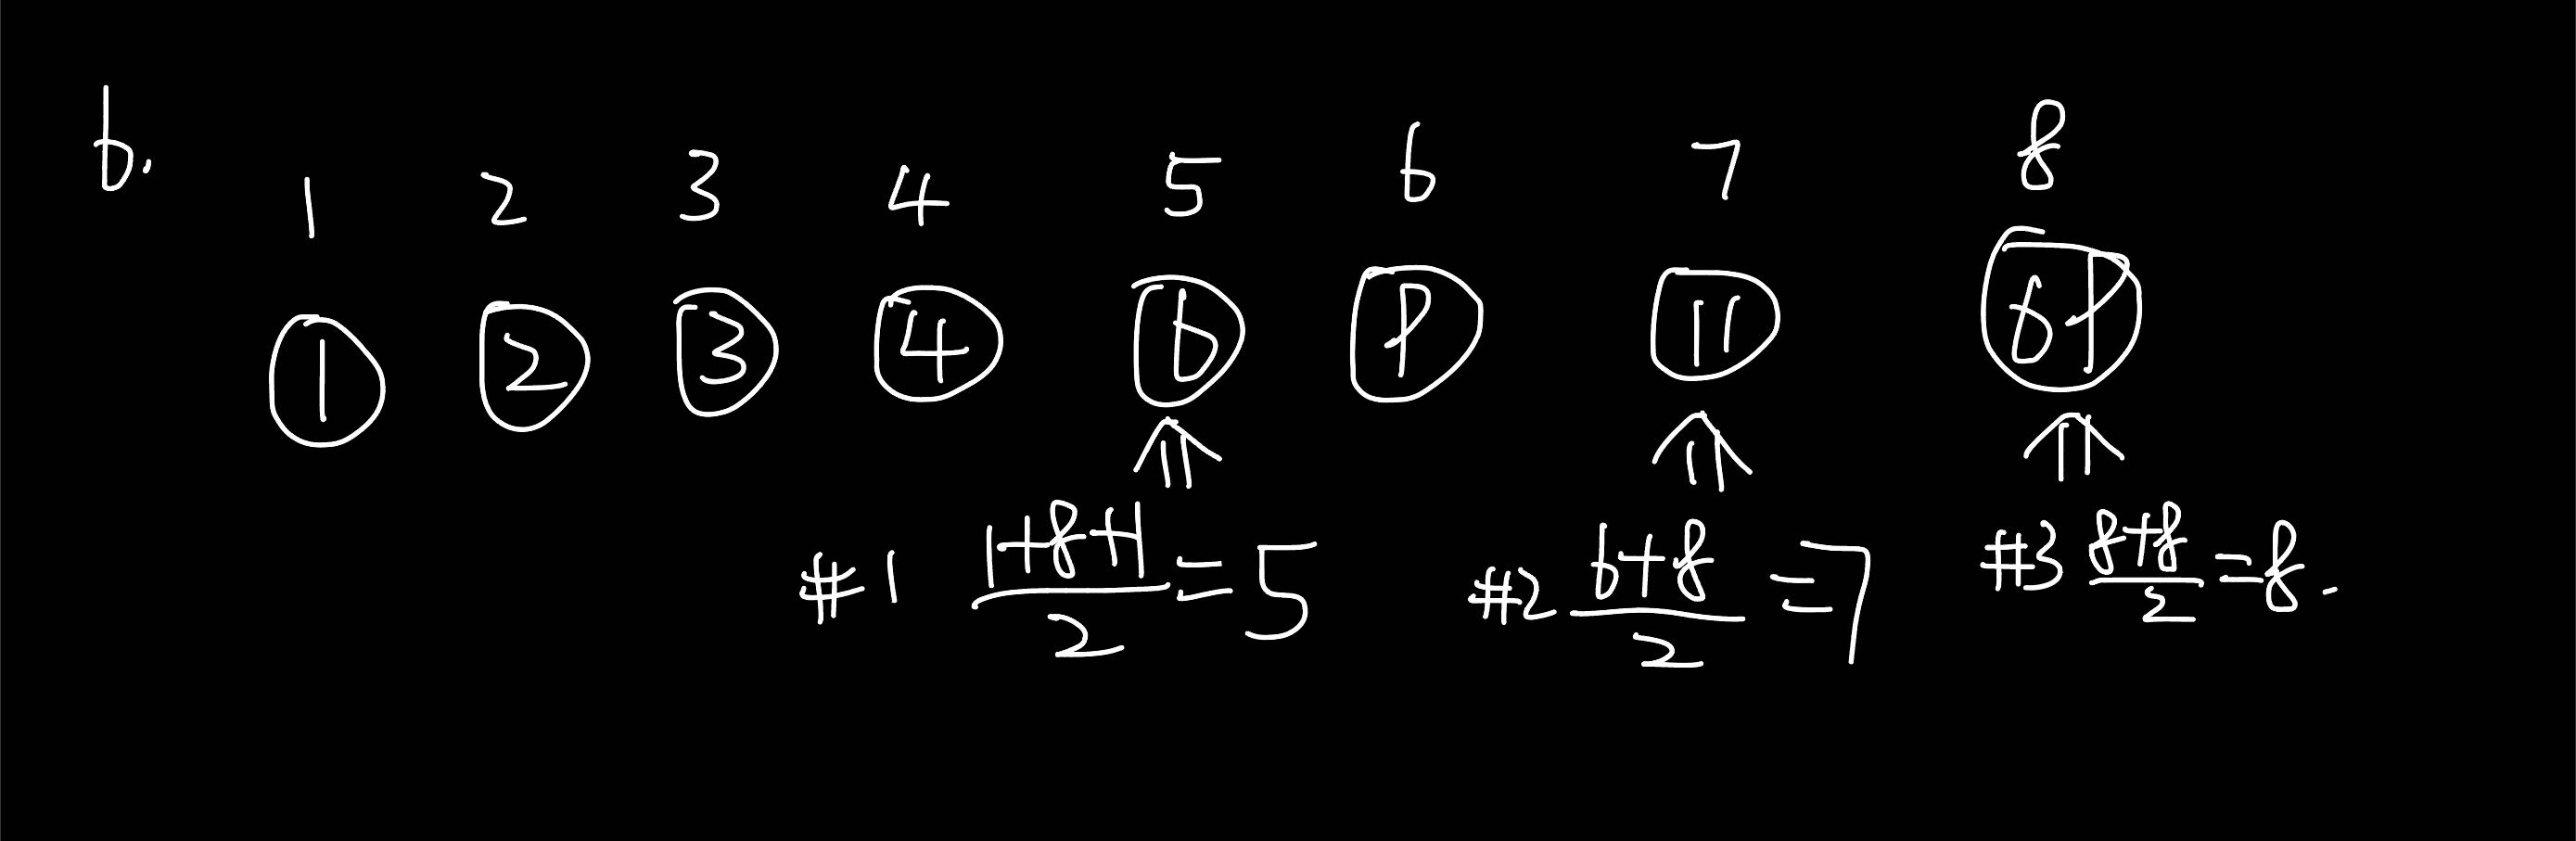 b. 1 2 3 4 5 6 7 8
1 2 3 4 6 9 11 69
#1 (1+8+1)/2 = 5 #2 (6+8)/2 = 7 #3 (8+8)/2 = 8.